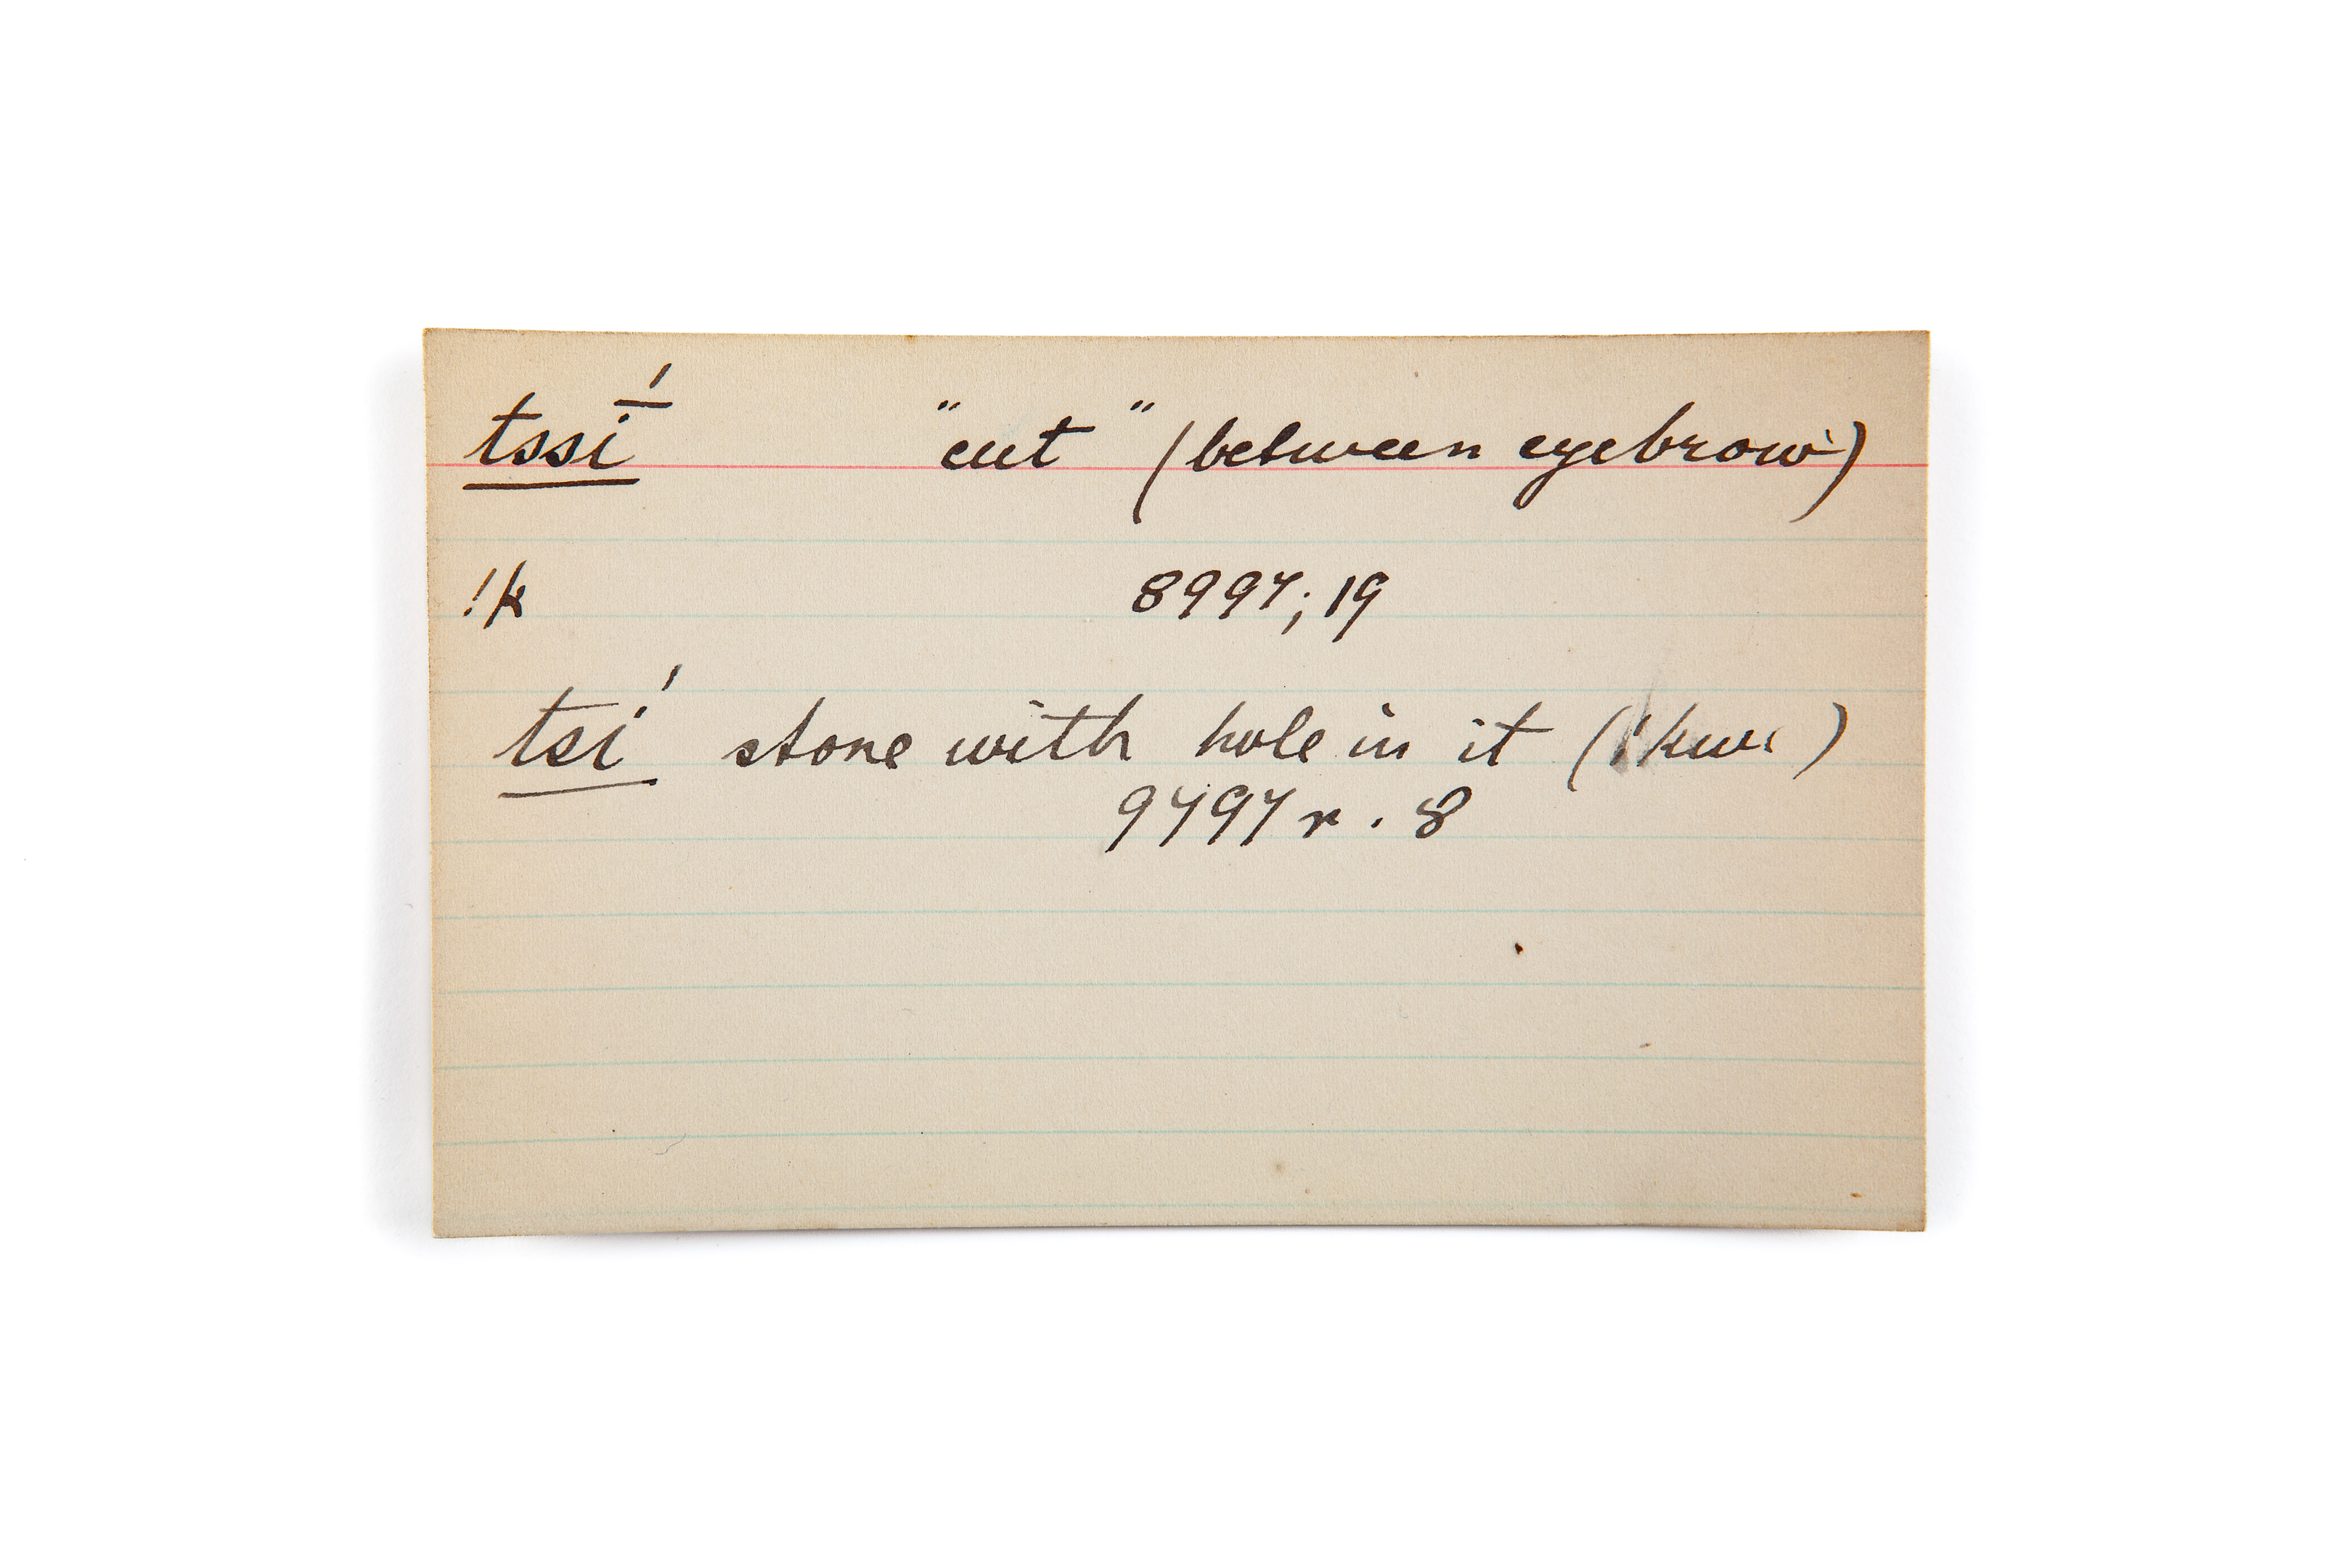 tssi̅́ "cut" (between eyebrow)
!k 8997; 19
tsi̍ stone with hole in it (!kwi)
9797 r. 8